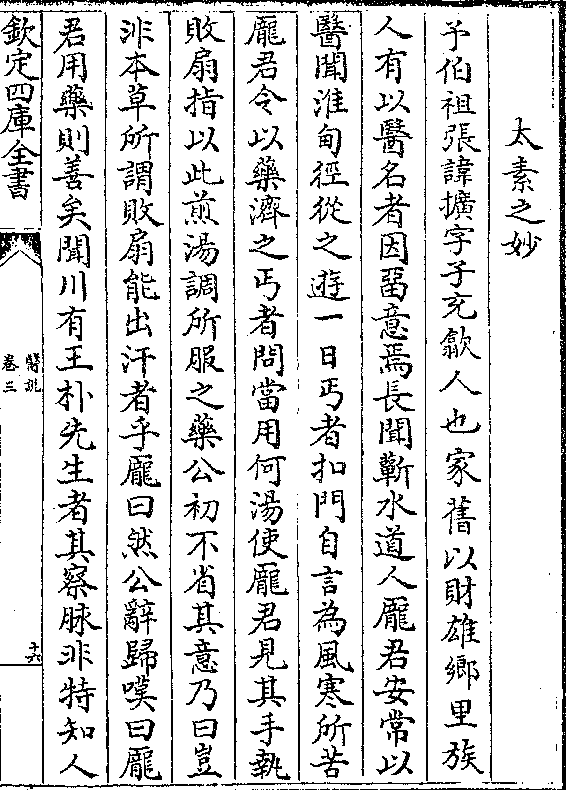 太素之妙
予伯祖張諱擴字子充歙人也家舊以財雄鄉里族
人有以醫名者因留意焉長聞蘄水道人龐君安常以
醫聞淮甸徑從之遊一日丐者扣門自言為風寒所苦
龐君令以藥濟之丐者問當用何湯使龐君見其手執
敗扇指以此煎湯調所服之藥公初不省其意乃曰豈
非本草所謂敗扇能出汗者乎龐曰然公辭歸嘆曰龐
君用藥則善矣聞川有王朴先生者其察脉非特知人
欽定四庫全書
醫說
卷三
十六